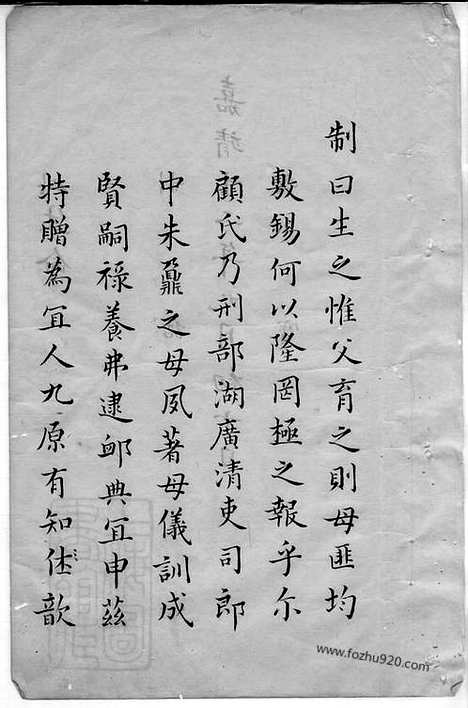 制曰生之惟父育之則母匪均
敷錫何以隆罔極之報乎尔
顧氏乃刑部湖廣清吏司郎
中朱鼐之母夙著母儀訓成
賢嗣祿養弗逮卹典宜申茲
特贈為宜人九原有知歆
www.fozhu920.com